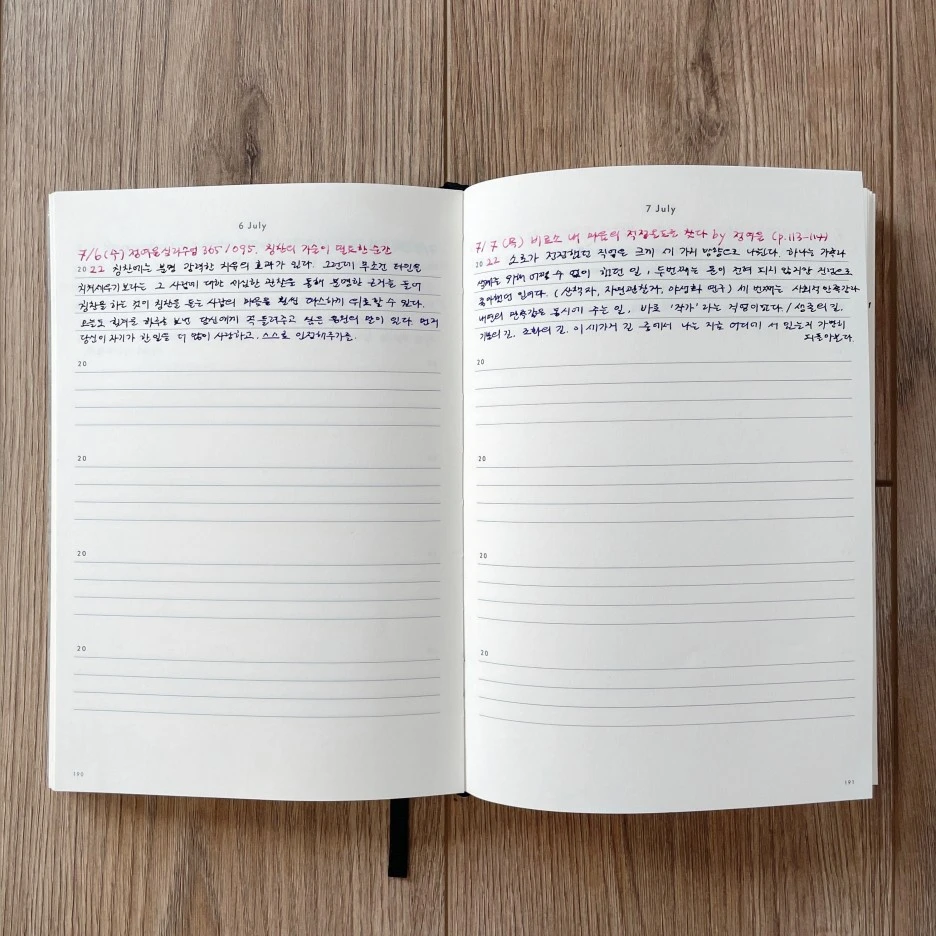 6 July
7/6 (수) 정여울 심리수업 365/095. 칭찬의 기술이 필요한 순간
20 22 칭찬에는 분명 강력한 치유의 효과가 있다. 그런데 무조건 타인을
치켜세우기보다는 그 사람에 대한 세심한 관찰을 통해 분명한 근거를 들어
칭찬을 하는 것이 칭찬을 듣는 사람의 마음을 훨씬 따스하게 위로할 수 있다.
오늘도 힘겨운 하루를 보낸 당신에게 꼭 들려주고 싶은 응원의 말이 있다. 먼저
당신이 자기가 한 일을 더 많이 사랑하고, 스스로 인정해주기를.
20
20
20
20
190
7 July
7/7 (목) 비로소 내 마음의 적정온도를 찾다 by 정여울 (p.113-114)
20 22 소로가 진정했던 직업은 크게 세 가지 방향으로 나뉜다. 하나는 가족과
생계를 위해 어쩔 수 없이 했던 일, 두번째는 돈이 전혀 되지 않지만 진심으로
좋아했던 일이다. (산책자, 자연관찰자, 야생화 연구) 세 번째는 사회적 만족감과
내면의 만족감을 동시에 주는 일, 바로 '작가'라는 직업이었다. / 생존의 길,
기쁨의 길, 조화의 길. 이 세가지 길 중에서 나는 지금 어디에 서 있는지 가만히
되돌아본다.
20
20
20
20
191